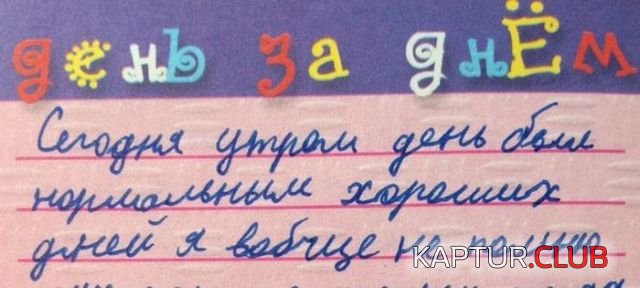 день за днЁм
Сегодня утром день был
нормальным хороших
дней я вобще не помню
KAPTUR.CLUB